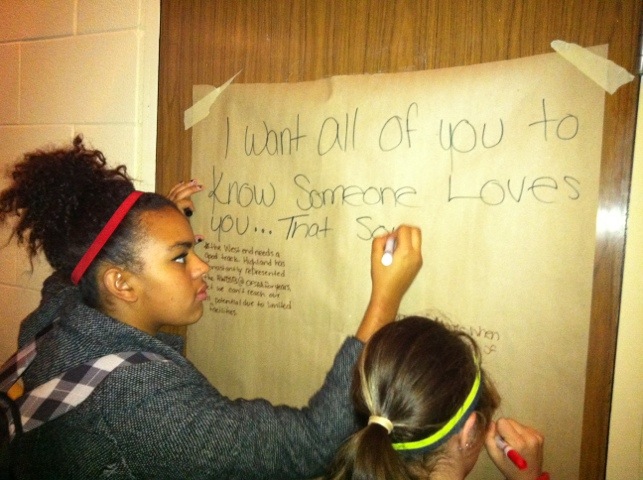 I want all of you to
Know Someone Loves
you... That So
#the West end needs a
good track. Highland has
consistantly represented
the @ OFSAA for years,
we can't reach our
potential due to limited
facilities.
when
of